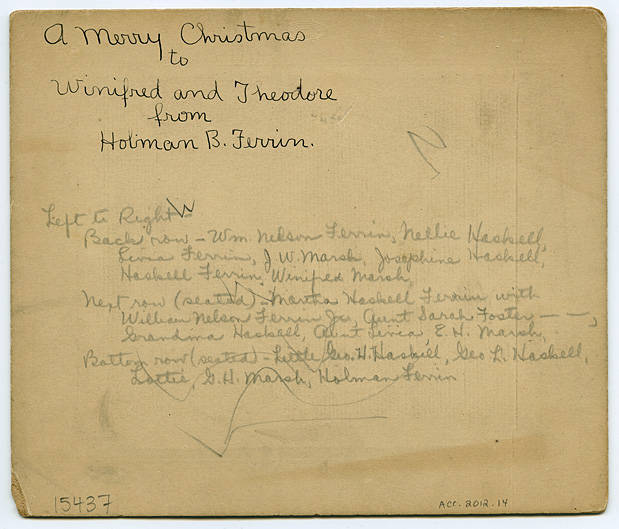 A Merry Christmas
to
Winifred and Theodore
from
Holman B. Ferrin.
Left to Right -
Back row - Wm. Nelson Ferrin, Nellie Haskell,
Livia Ferrin, J. W. Marsh, Josephine Haskell,
Haskell Ferrin, Winifred Marsh,
Next row (seated) - Martha Haskell Ferrin with
William Nelson Ferrin Jr., Aunt Sarah Foster - -,
Grandma Haskell, Aunt Livia E. H. Marsh,
Bottom row (seated) - Little Geo. H. Haskell, Geo L. Haskell,
Lottie, G. H. Marsh, Holman Ferrin
15437
Acc. 2012.14